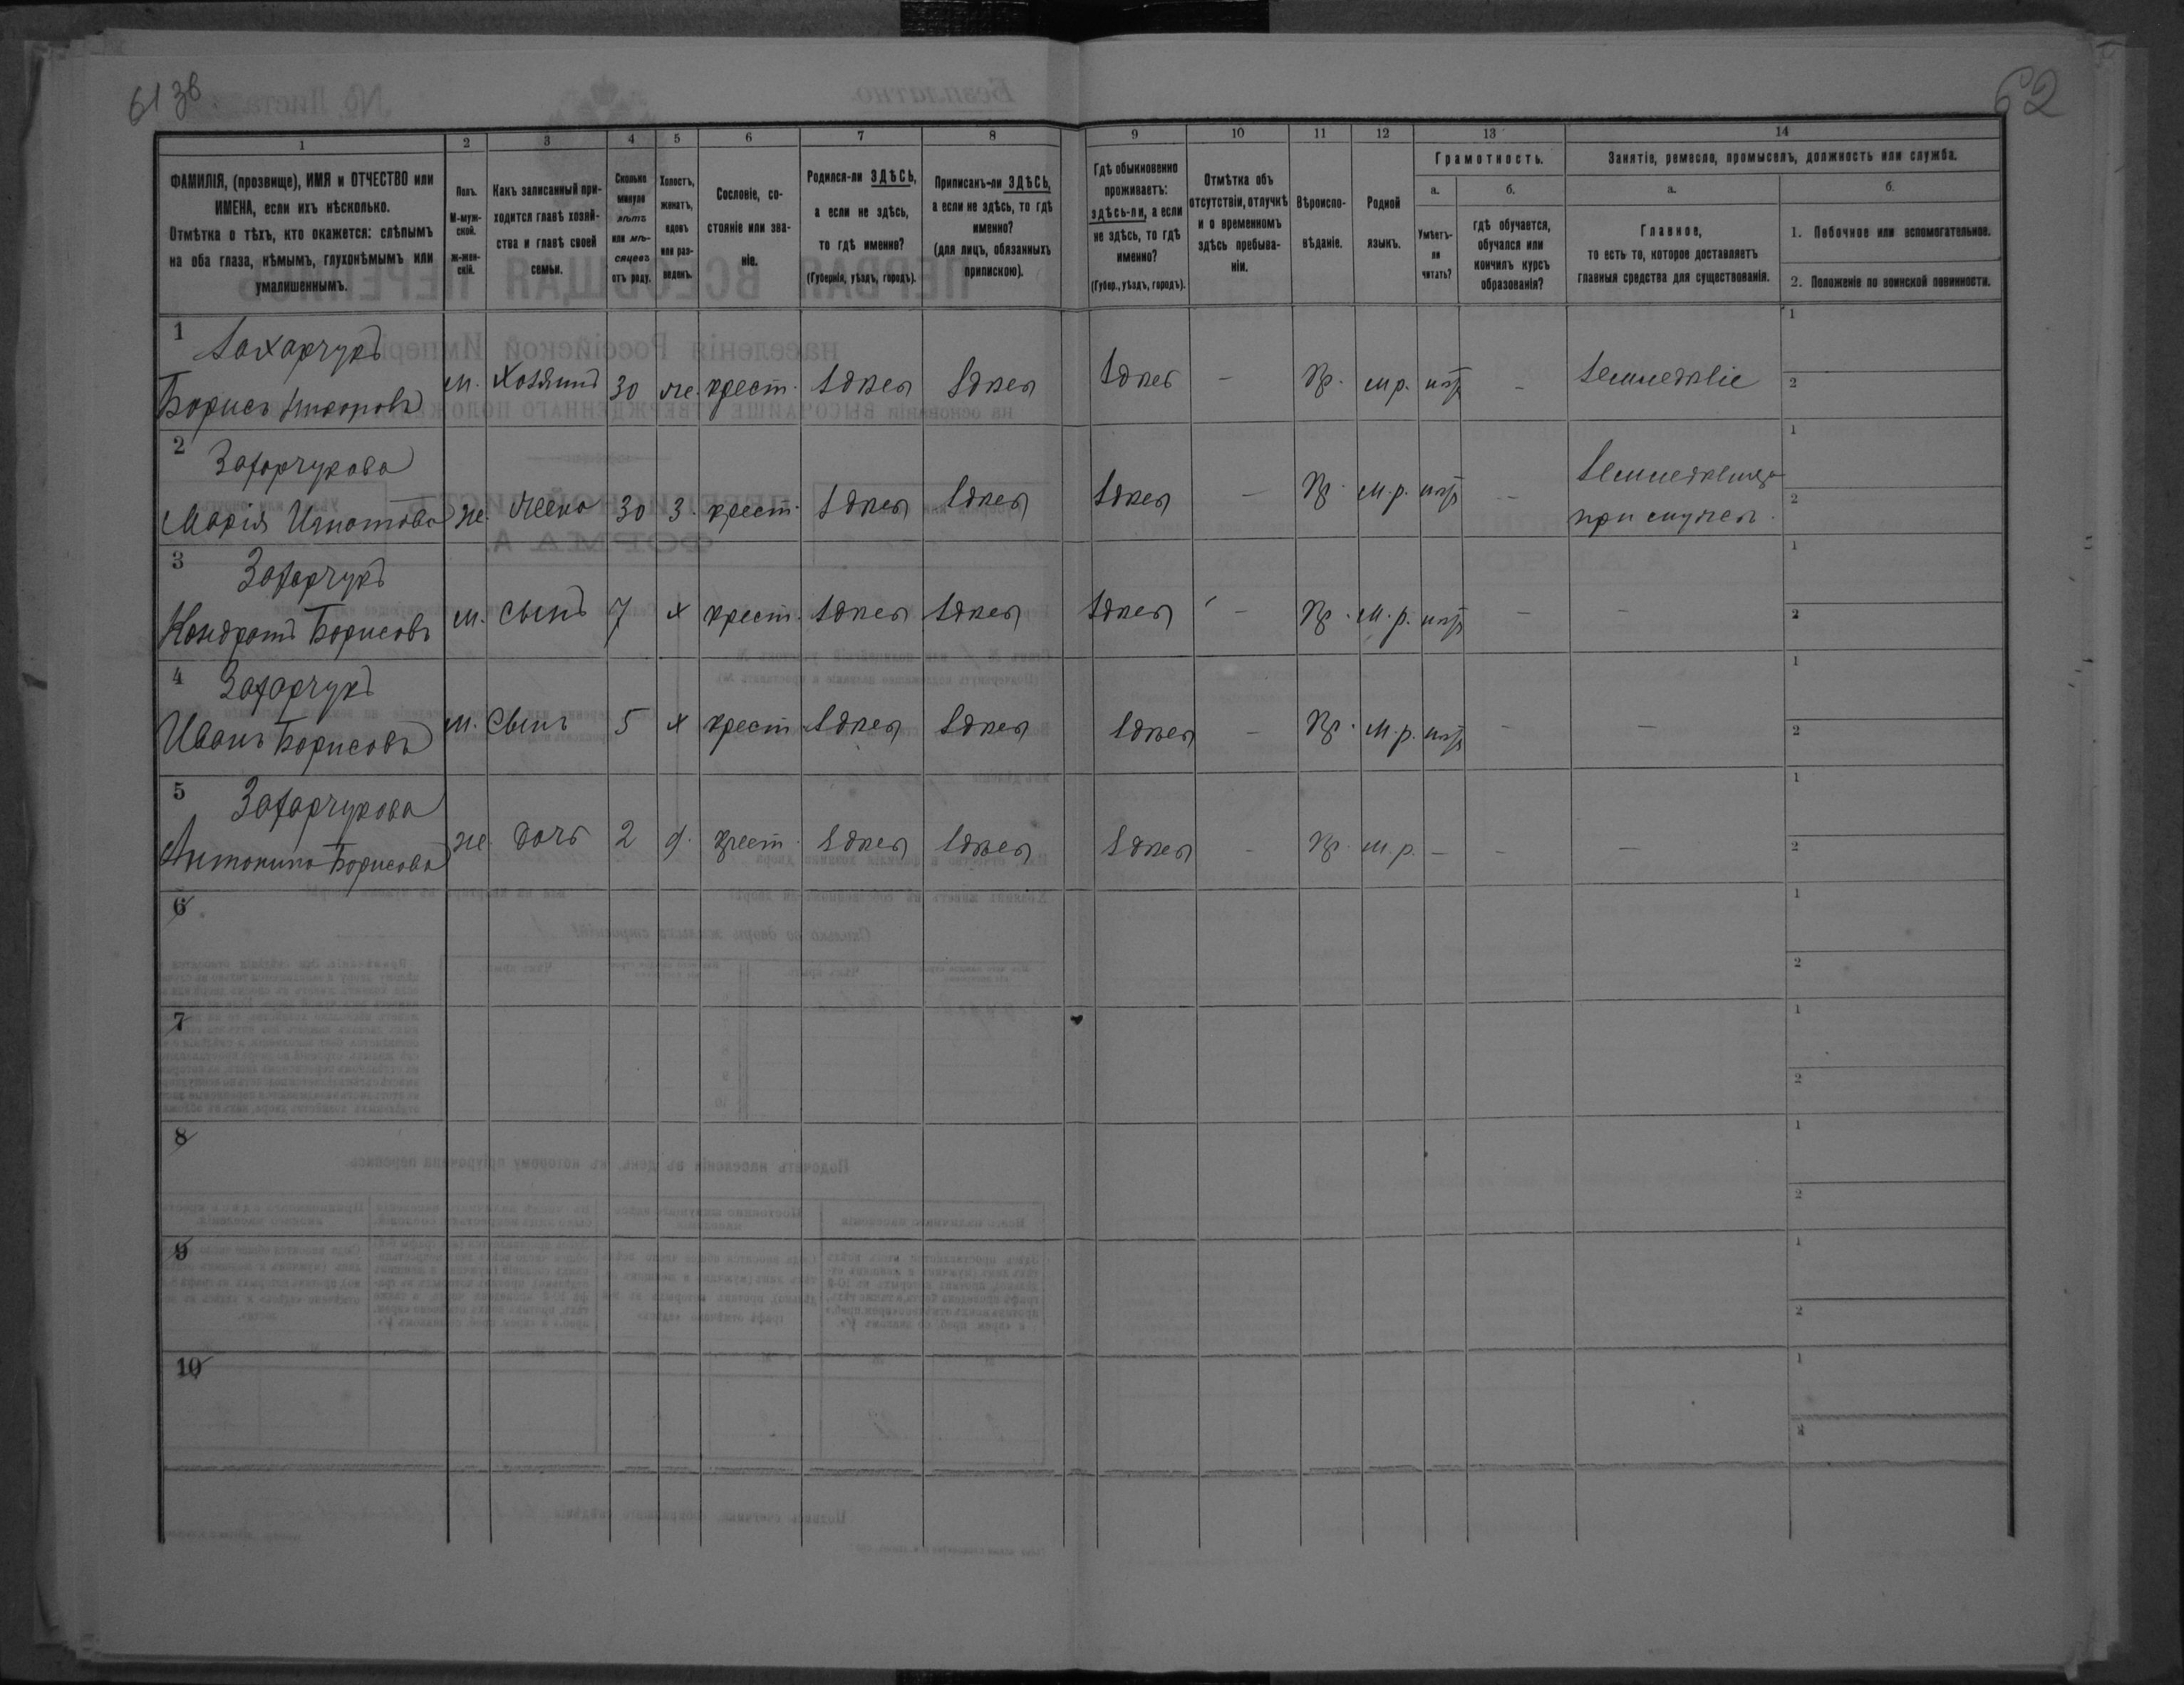 61 зв
62
1 2 3 4 5 6 7 8 9 10 11 12 13 14
ФАМИЛІЯ, (прозвище), ИМЯ и ОТЧЕСТВО или
ИМЕНА, если ихъ нѣсколько.
Отмѣтка о тѣхъ, кто окажется: слѣпымъ
на оба глаза, нѣмымъ, глухонѣмымъ или
умалишеннымъ.
Полъ.
М-муж-
ской.
ж-жен-
скій.
Какъ записанный при-
ходится главѣ хозяй-
ства и главѣ своей
семьи.
Сколько
минуло
лѣтъ
или мѣ-
сяцевъ
отъ роду.
Холостъ,
женатъ,
вдовъ
или раз-
веденъ.
Сословіе, со-
стояніе или зва-
ніе.
Родился-ли ЗДѢСЬ,
а если не здѣсь,
то гдѣ именно?
(Губернія, уѣздъ, городъ).
Приписанъ-ли ЗДѢСЬ,
а если не здѣсь, то гдѣ
именно?
(для лицъ, обязанныхъ
припискою).
Гдѣ обыкновенно
проживаетъ:
здѣсь-ли, а если
не здѣсь, то гдѣ
именно?
(Губер., уѣздъ, городъ).
Отмѣтка объ
отсутствіи, отлучкѣ
и о временномъ
здѣсь пребыва-
ніи.
Вѣроиспо-
вѣданіе.
Родной
языкъ.
Грамотность.
а.
Умѣетъ-
ли
читать?
б.
гдѣ обучается,
обучался или
кончилъ курсъ
образованія?
Занятіе, ремесло, промыселъ, должность или служба.
а.
Главное,
то есть то, которое доставляетъ
главныя средства для существованія.
б.
1. Побочное или вспомогательное.
2. Положеніе по воинской повинности.
1 Захарчукъ
Борисъ м. хозяинъ 30 же. крест. здѣсь здѣсь здѣсь - Пр. м р. нѣтъ - земледѣліе 1 2
2 Захарчукова
Марія Игнатова же. жена 30 з. крест. здѣсь здѣсь здѣсь - Пр. м. р. нѣтъ - 1 2
при мужѣ
3 Захарчукъ
Кондратъ Борисовъ м. сынъ 7 х крест. здѣсь здѣсь здѣсь - Пр. м. р. нѣтъ - - 1 2
4 Захарчукъ
Иванъ Борисовъ м. сынъ 5 х крест здѣсь здѣсь здѣсь - Пр. м. р. нѣтъ - - 1 2
5 Захарчукова
Антонина Борисова же дочь 2 д. крест. здѣсь здѣсь здѣсь - Пр. м р. - - - 1 2
6 1 2
7 1 2
8 1 2
9 1 2
10 1 2